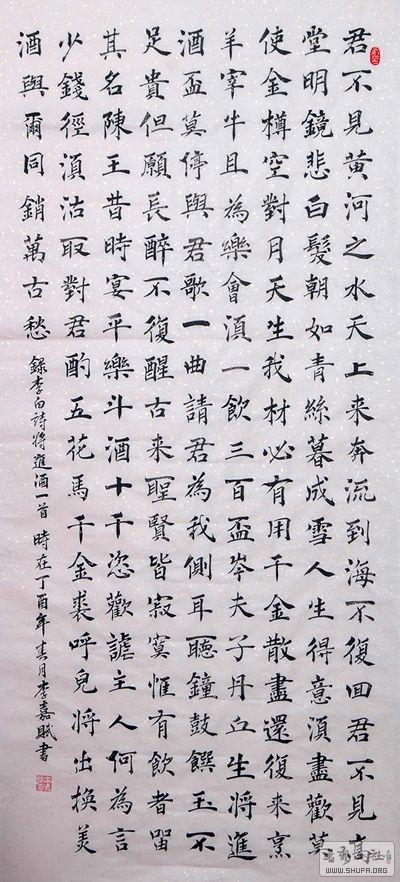 君不見黄河之水天上来奔流到海不復回君不見高
堂明鏡悲白髮朝如青絲暮成雪人生得意須盡歡莫
使金樽空對月天生我材必有用千金散盡還復来烹
羊宰牛且為樂會須一飲三百盃岑夫子丹丘生將進
酒盃莫停與君歌一曲請君為我側耳聽鐘鼓饌玉不
足貴但願長醉不復醒古来聖賢皆寂寞惟有飲者留
其名陳王昔時宴平樂斗酒十千恣歡謔主人何為言
少錢徑須沽取對君酌五花馬千金裘呼兒將出換美
酒與爾同銷萬古愁 録李白詩將進酒一首 時在丁酉年春月李嘉書
WWW.SHUFA.ORG